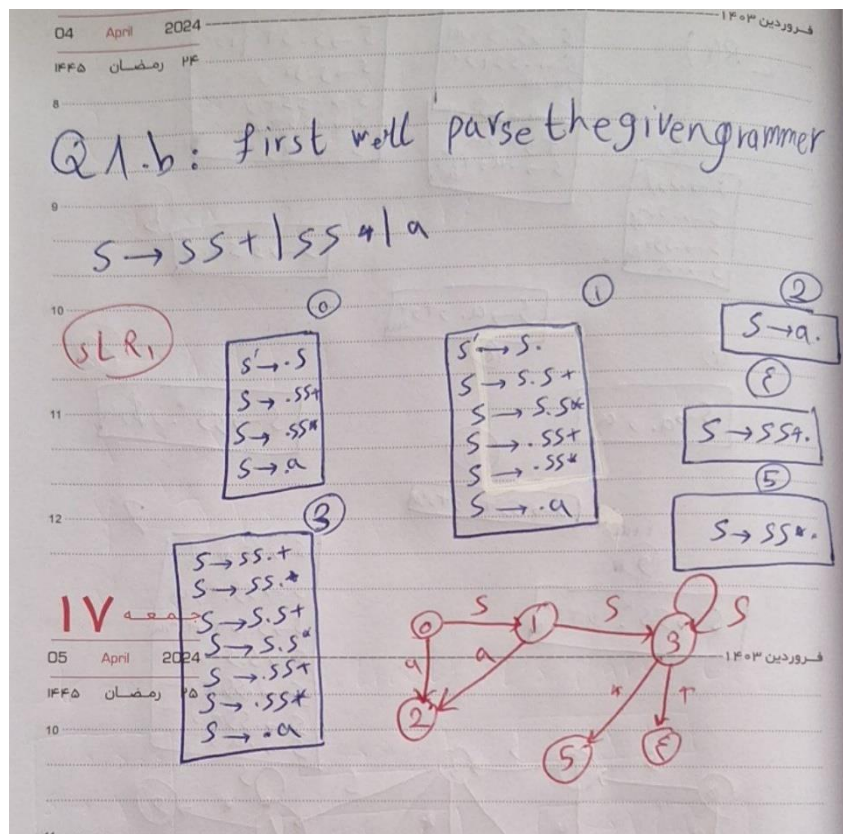 04 April 2024
فروردین ۱۴۰۳
۱۴۴۵ رمضان ۲۴
8
Q1.b: first well parse thegivengrammer
9
S → SS+ | SS* | a
10
SLR1
0
S' → .S
S → .SS+
S → .SS*
S → .a
1
S' → S.
S → S.S+
S → S.S*
S → .SS+
S → .SS*
S → .a
2
S → a.
۴
S → SS+.
5
S → SS*.
11
12
3
S → SS.+
S → SS.*
S → S.S+
S → S.S*
S → .SS+
S → .SS*
S → .a
۱۷ جمعه
05 April 2024
فروردین ۱۴۰۳
۱۴۴۵ رمضان ۲۵
10
0 S 1 S 3 S
a a * +
2 5 ۴